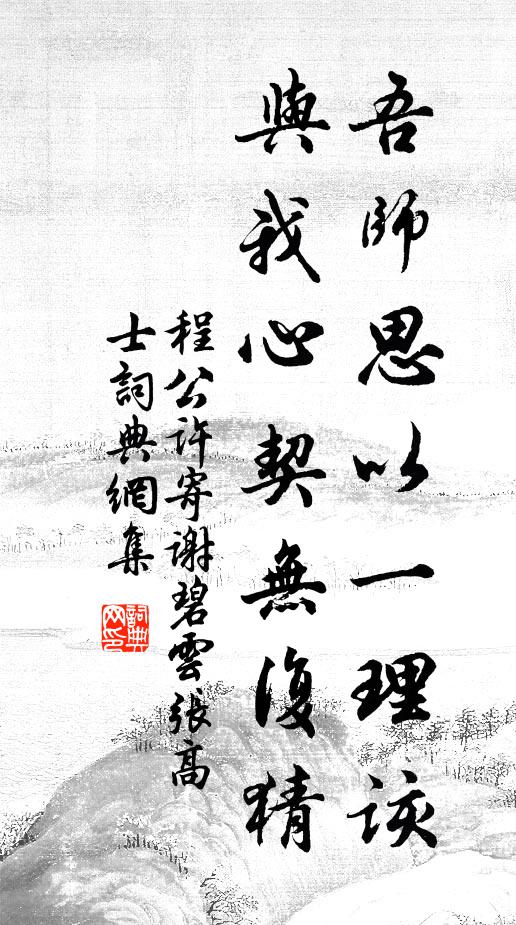 吾師思以一理該
與我心契無復猜
程公許寄謝碧雲張高
士詞典網集
詞典
网印